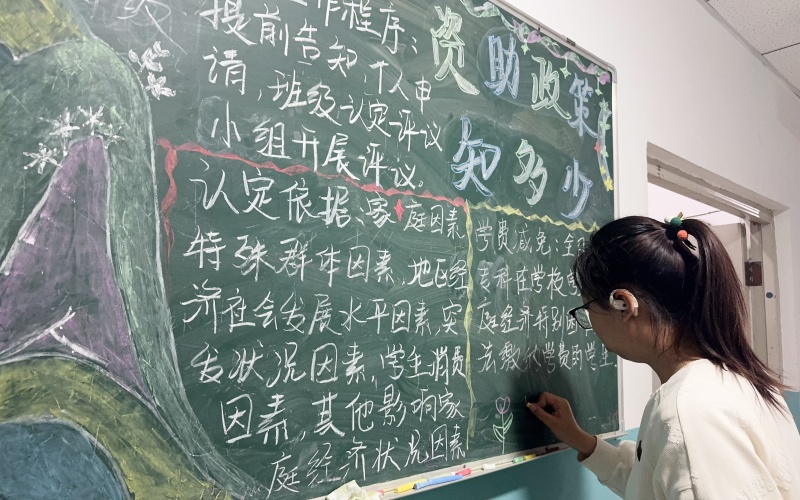 资助政策
知多少
作程序：
提前告知，个人申
请，班级认定评议
小组开展评议。
认定依据：家庭因素
特殊群体因素，地区经
济社会发展水平因素，突
发状况因素，学生消费
因素，其他影响家
庭经济状况因素
学费减免：全
专科在学校
庭经济特别
法缴
学费的学生